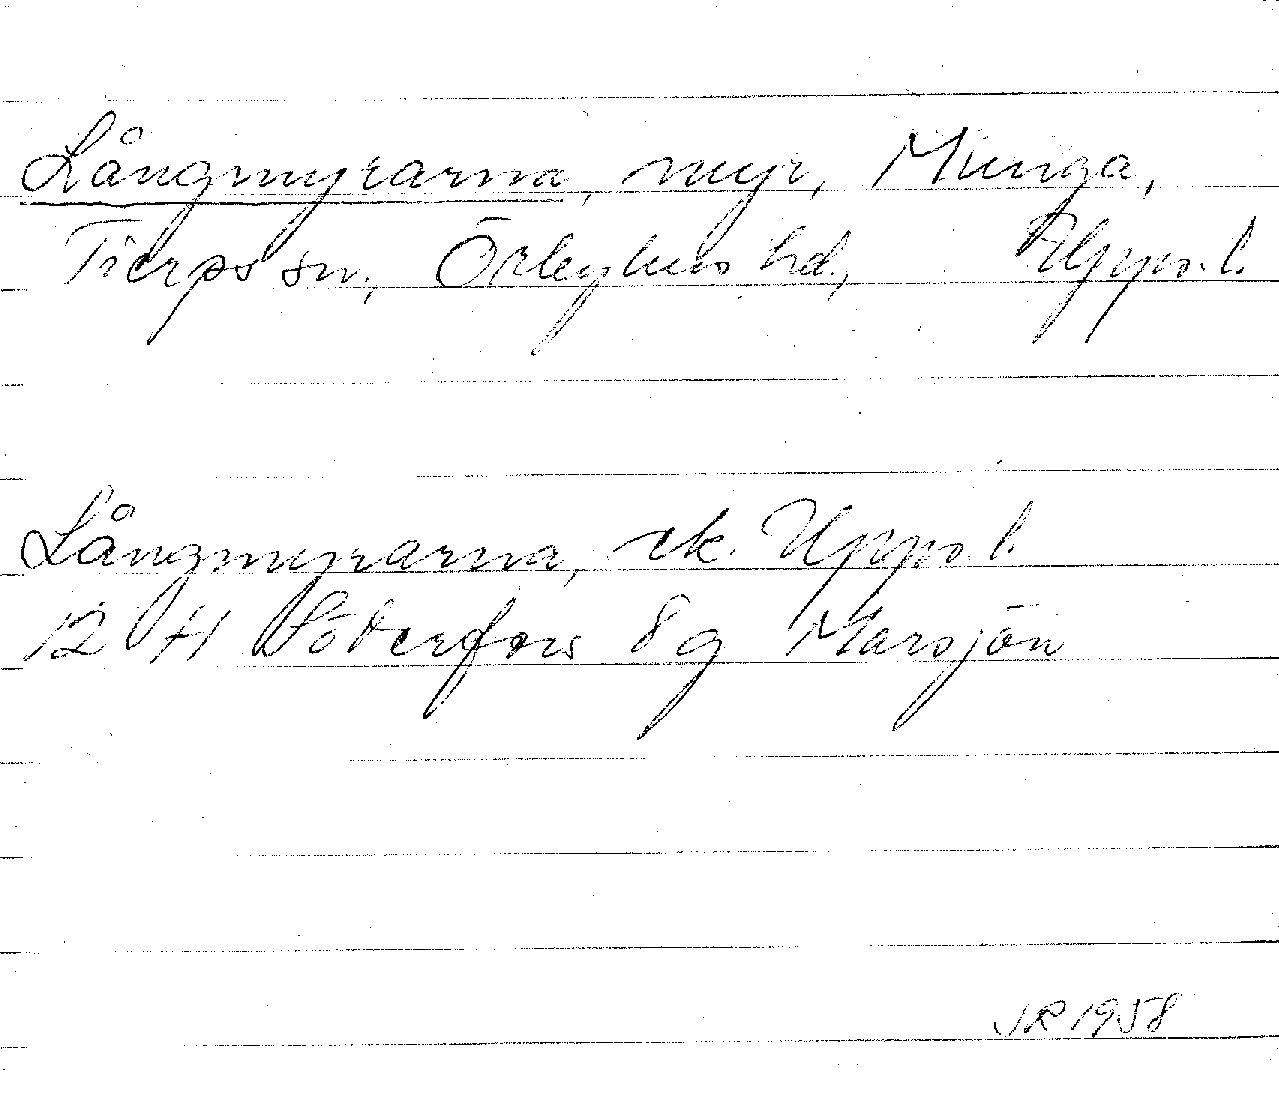 Långmyrarna, myr, Munga,
Tierps sn., Örbyhus hd., Upps. l.
Långmyrarna, ek. Upps. l.
12 H Söderfors 8 g Marsjön
JR 1958